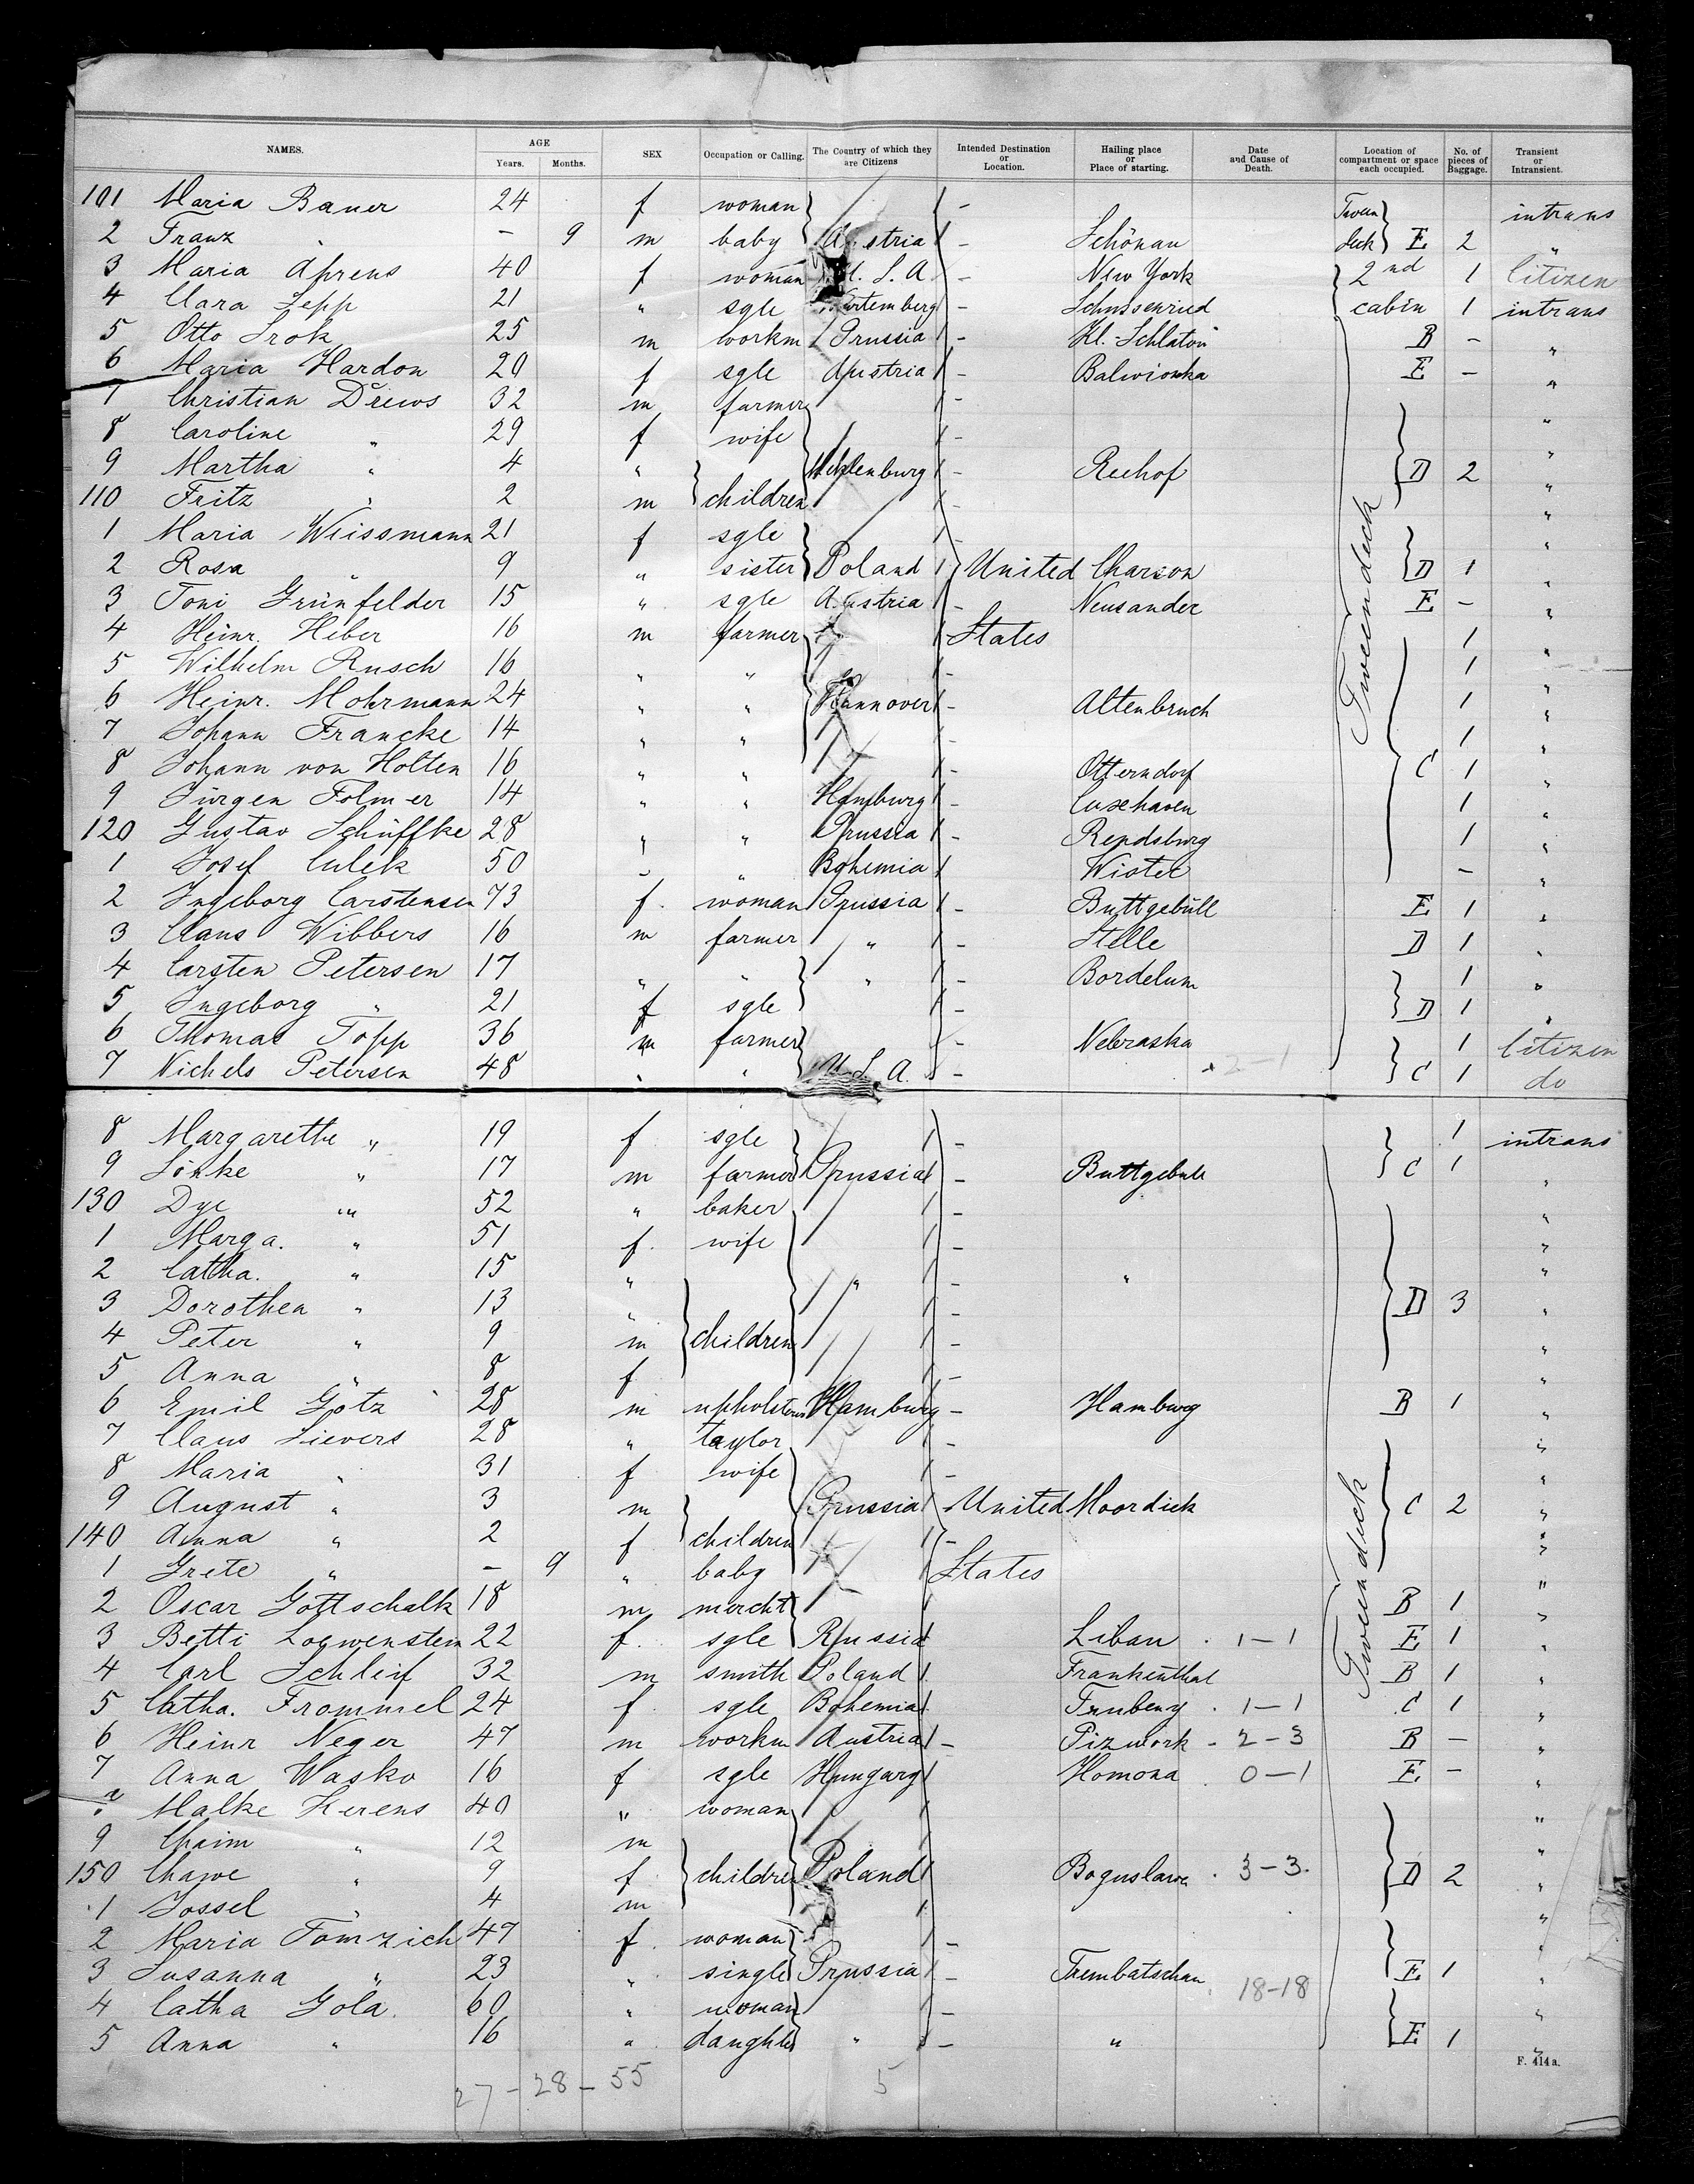 NAMES. AGE Years. Months. SEX Occupation or Calling. The Country of which they are Citizens Intended Destination or Location. Hailing place or Place of starting. Date and Cause of Death. Location of compartment or space each occupied. No. of pieces of Baggage. Transient or Intransient.
101 Maria Bauer 24 f woman - Tween intrans
2 Franz " - 9 m baby Austria - Schönau deck E 2 "
3 Maria Ahrens 40 f woman U. S. A - New York 2nd 1 Citizen
4 Clara Zepp 21 " sgle Würtemberg - Schussenried cabin 1 intrans
5 Otto Srok 25 m workm Prussia - Kl. Schlatow B - "
6 Maria Hardon 20 f sgle Austria - Balwionka E - "
7 Christian Drews 32 m farmer - "
8 Caroline " 29 f wife - "
9 Martha " 4 " Mecklenburg - Reehof D 2 "
110 Fritz " 2 m children - "
1 Maria Weissmann 21 f sgle - "
2 Rosa " 9 " sister Poland United Charson D 1 "
3 Toni Grünfelder 15 " sgle Austria - Neusander E - "
4 Heinr. Heber 16 m farmer States 1 "
5 Wilhelm Rusch 16 " " - 1 "
6 Heinr. Mohrmann 24 " " Hannover - Altenbruch 1 "
7 Johann Francke 14 " " - 1 "
8 Johann von Holten 16 " " - Otterndorf C 1 "
9 Jürgen Folmer 14 " " Hamburg - Cuxhaven 1 "
120 Gustav Schüffke 28 " " Prussia - Rendsburg 1 "
1 Josef Culek 50 " " Bohemia Wistec - "
2 Ingeborg Carstensen 73 f. woman Prussia - Buttgebüll E 1 "
3 Claus Wibbers 16 m farmer " - Stelle D 1 "
4 Carsten Petersen 17 " " " - Bordelum 1 "
5 Ingeborg " 21 f sgle - D 1 "
6 Thomas Topp 36 m farmer - Nebraska 1 Citizen
7 Nichels Petersen 48 " " U. S. A. - C 1 do
Tween deck
8 Margarethe " 19 f sgle - 1 intrans
9 Sönke " 17 m farmer Prussia - Buttgebüll C 1 "
130 Dye " 52 " baker - "
1 Marga. " 51 f. wife - "
2 Catha. " 15 " " - " "
3 Dorothea " 13 " - D 3 "
4 Peter " 9 m children - "
5 Anna " 8 f - "
6 Emil Götz 28 m upholsterer Hamburg - Hamburg B 1 "
7 Claus Sievers 28 " taylor - "
8 Maria " 31 f wife - "
9 August " 3 m Prussia - United Moordiek C 2 "
140 Anna " 2 f children - "
1 Grete " - 9 " baby States "
2 Oscar Gottschalk 18 m mercht B 1 "
3 Betti Loewenstein 22 f. sgle Russia Libau . 1-1 E 1 "
4 Carl Schleif 32 m smith Poland Frankenthal B 1 "
5 Catha. Frommel 24 f sgle Bohemia . 1-1 C 1 "
6 Heinr Neger 47 m workm Austria - Pizwork - 2-3 B - "
7 Anna Wasko 16 f sgle Hungary Homona . 0-1 E - "
Malke Kerens 40 " woman "
9 Chaim " 12 m "
150 Chawe " 9 f children Poland Boguslawa . 3-3. D 2 "
1 Jossel " 4 m "
2 Maria Tomzich 47 f. woman - "
3 Susanna " 23 " single Prussia - Trembatschau 18-18 E 1 "
4 Catha Gola. 60 " woman - "
5 Anna " 16 " daughter " - " E 1 "
Tween deck
F. 414 a.
27 - 28 - 55 5